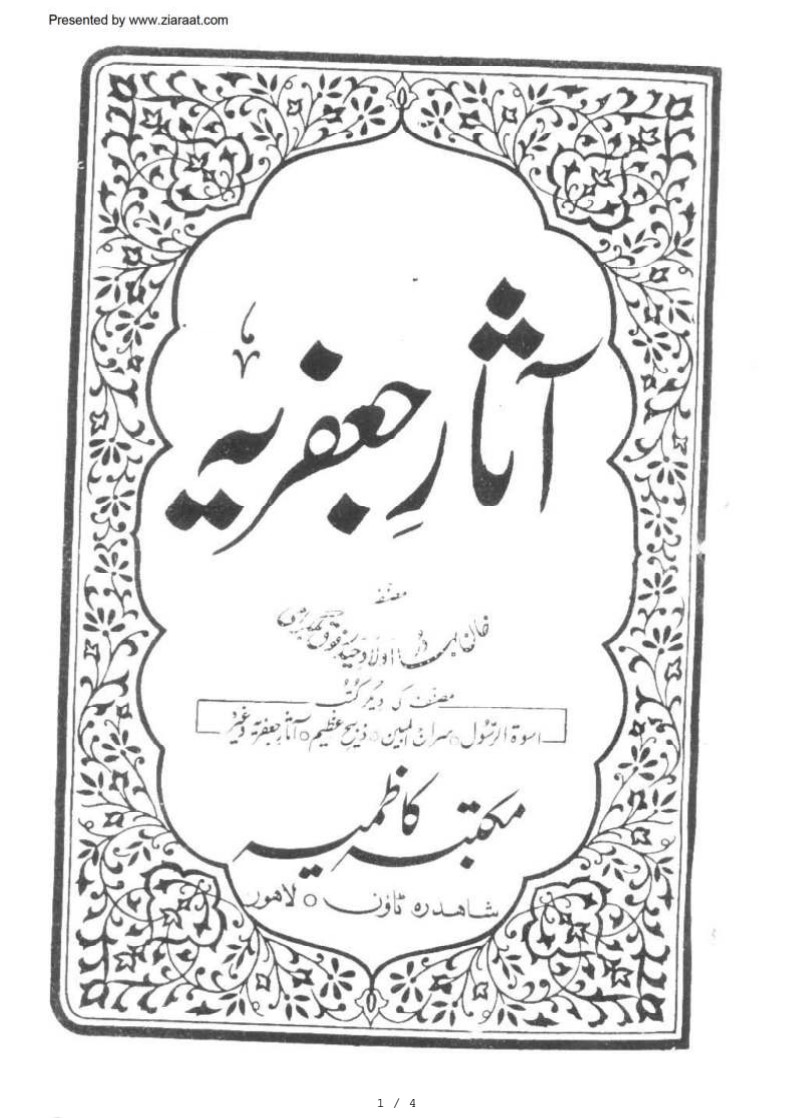 Presented by www.ziaraat.com
آثارِ جعفریہ
مصنفہ
خان بہادر اولاد حیدر فوق بلگرامی
مصنف کی دیگر کتب
اسوۃ الرسُول ○ سراج المبین ○ ذبح عظیم ○ آثارِ جعفریہ وغیرہ
مکتبہ کاظمیہ
شاھدرہ ٹاؤن ○ لاھور
1 / 4